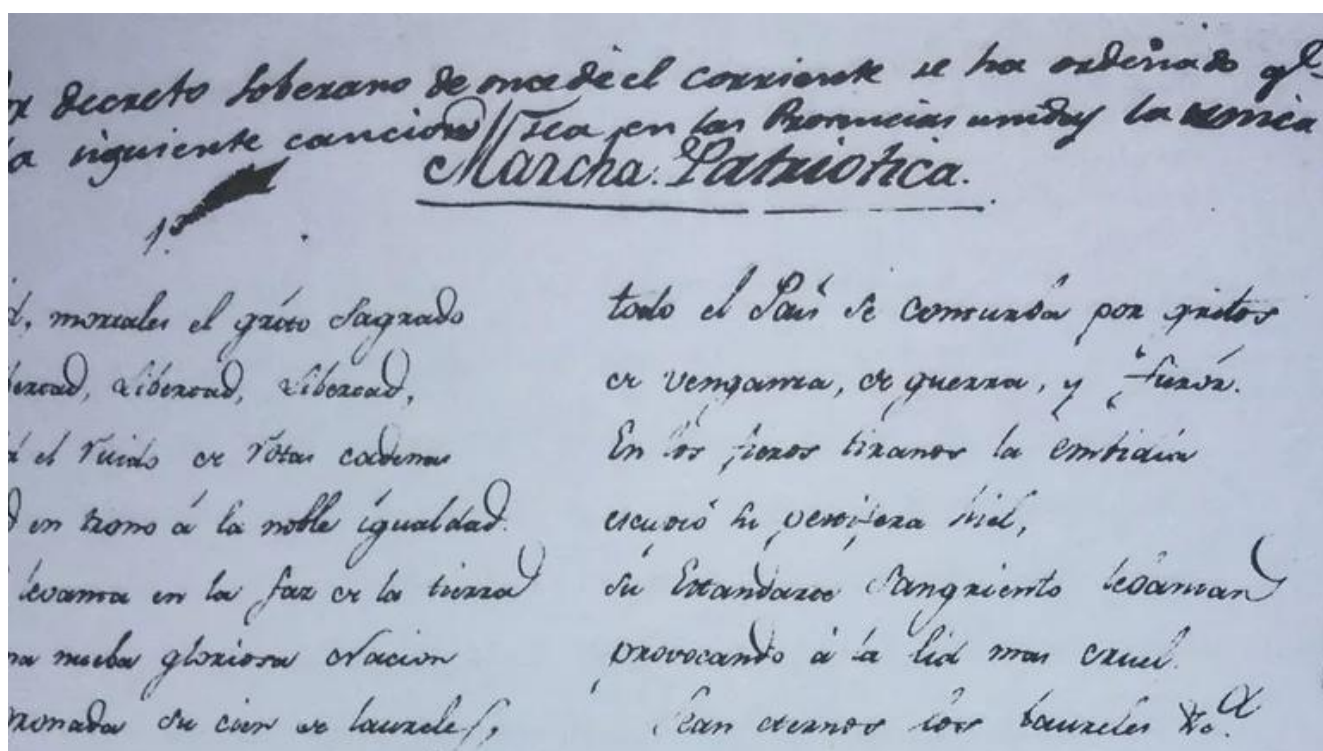 or decreto Soberano de once del corriente se ha ordenado qe.
la siguiente cancion sea en las Provincias unidas la unica
Marcha Patriotica.
1ª
d, mortales el grito Sagrado
bertad, Libertad, Libertad,
d el ruido de rotas cadenas
d en trono á la noble igualdad.
levanta en la faz de la tierra
na nueba gloriosa Nacion
oronada su cien de laureles,
todo el Pais se conturba por gritos
de venganza, de guerra, y furór.
En los fieros tiranos la embidia
escupió su pestifera hiel,
su Estandarte Sangriento lebantan
provocando á la lid mas cruel.
Sean eternos los Laureles &ca.